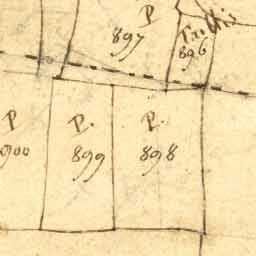 P
897
896
P
900
P.
899
P.
898